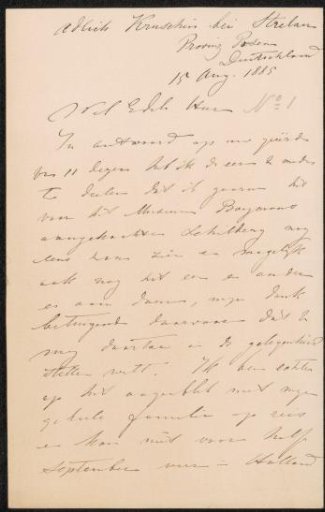 Adlich Kruschin bei Strelau
Provinz Posen
Deutschland
15 Aug. 1885
Wel Edele Heer No 1
In antwoord op uw geëerde
van 11 dezer heb ik de eer U mede
te deelen dat ik gaarne het
voor het Museum Boymans
aangekochte schilderij nog
eens kom zien en mogelijk
ook nog het een en ander
er aan doen, mijn dank
betuigend daarvoor dat U
mij daartoe in de gelegenheid
stellen wilt. Ik ben echter
op het oogenblik met mijn
geheele familie op reis
en kom niet voor half
September weer in Holland